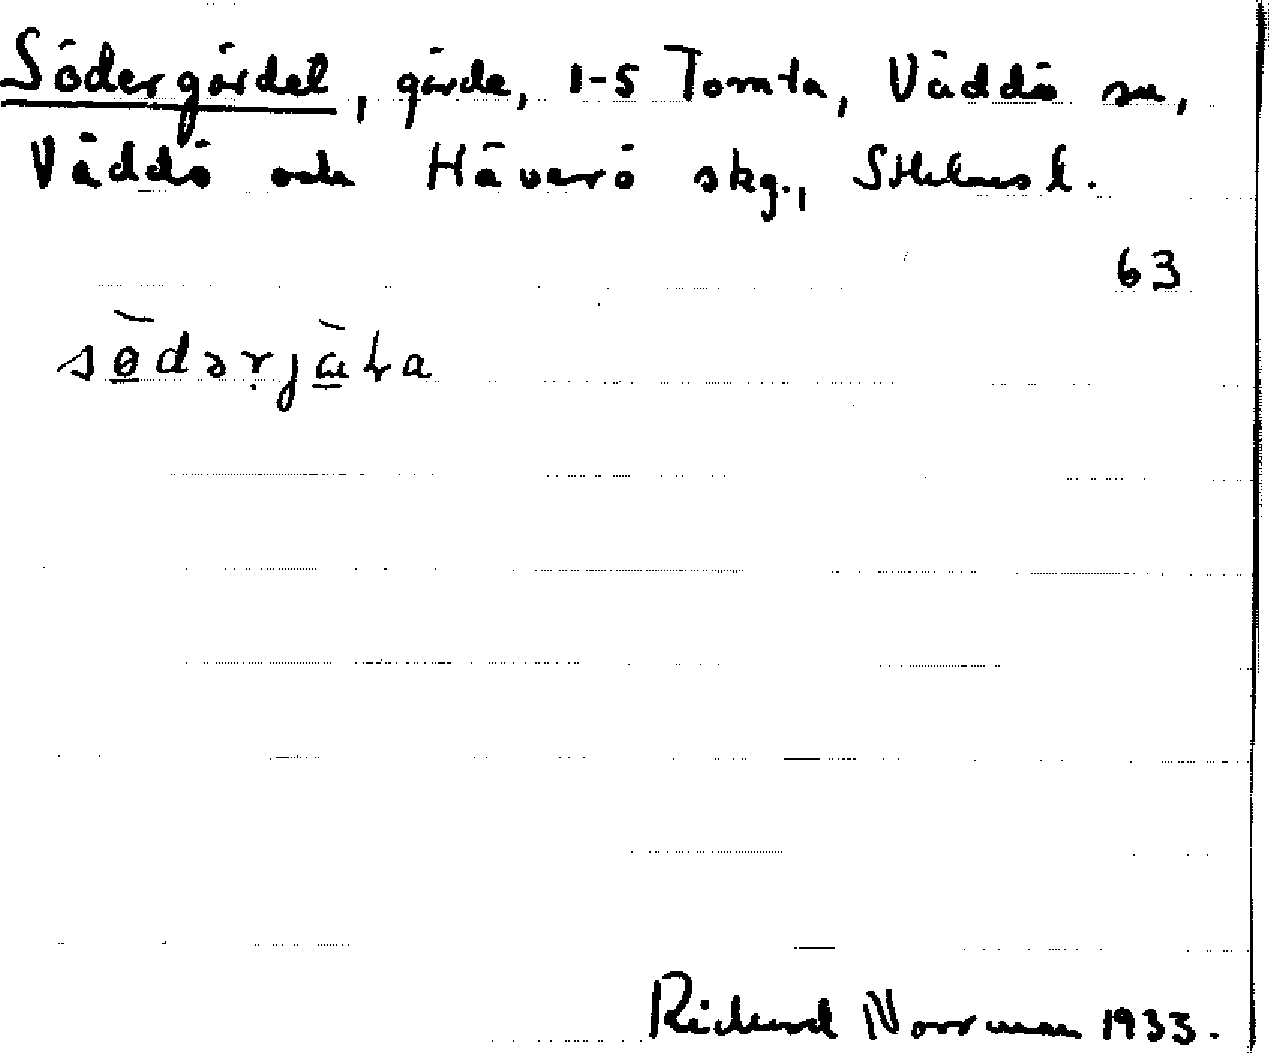 Södergärdet, gärde, 1-5 Tomta, Väddö sn,
Väddö och Häverö skg., Sthlms l.
63
Richard Norrman 1933.